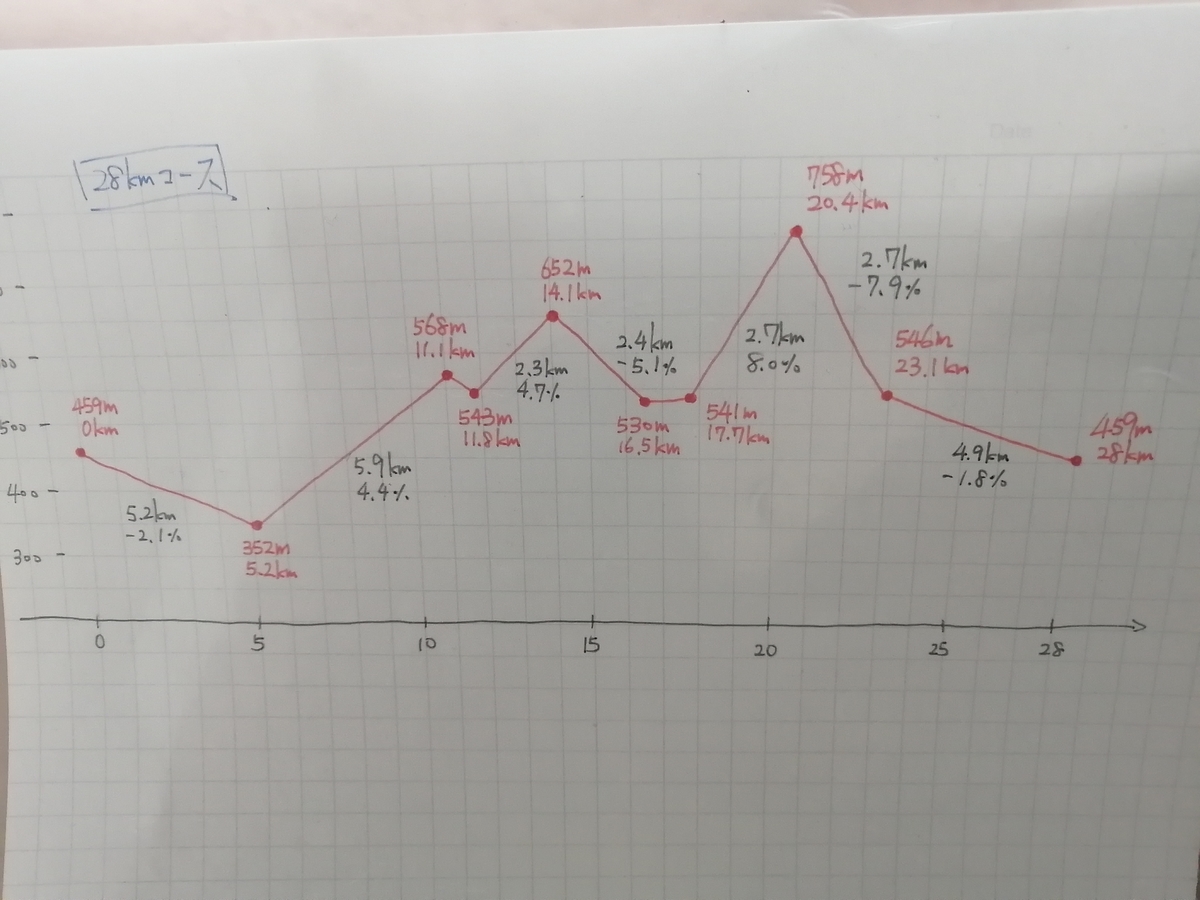 28kmコース
758m
20.4km
2.7km
-7.9%
652m
14.1km
568m
11.1km
2.4km
-5.1%
2.7km
8.0%
546m
23.1km
2.3km
4.7%
459m
0km
543m
11.8km
530m
16.5km
541m
17.7km
459m
28km
500
5.9km
4.4%
4.9km
-1.8%
400
5.2km
-2.1%
352m
5.2km
300
0
5
10
15
20
25
28